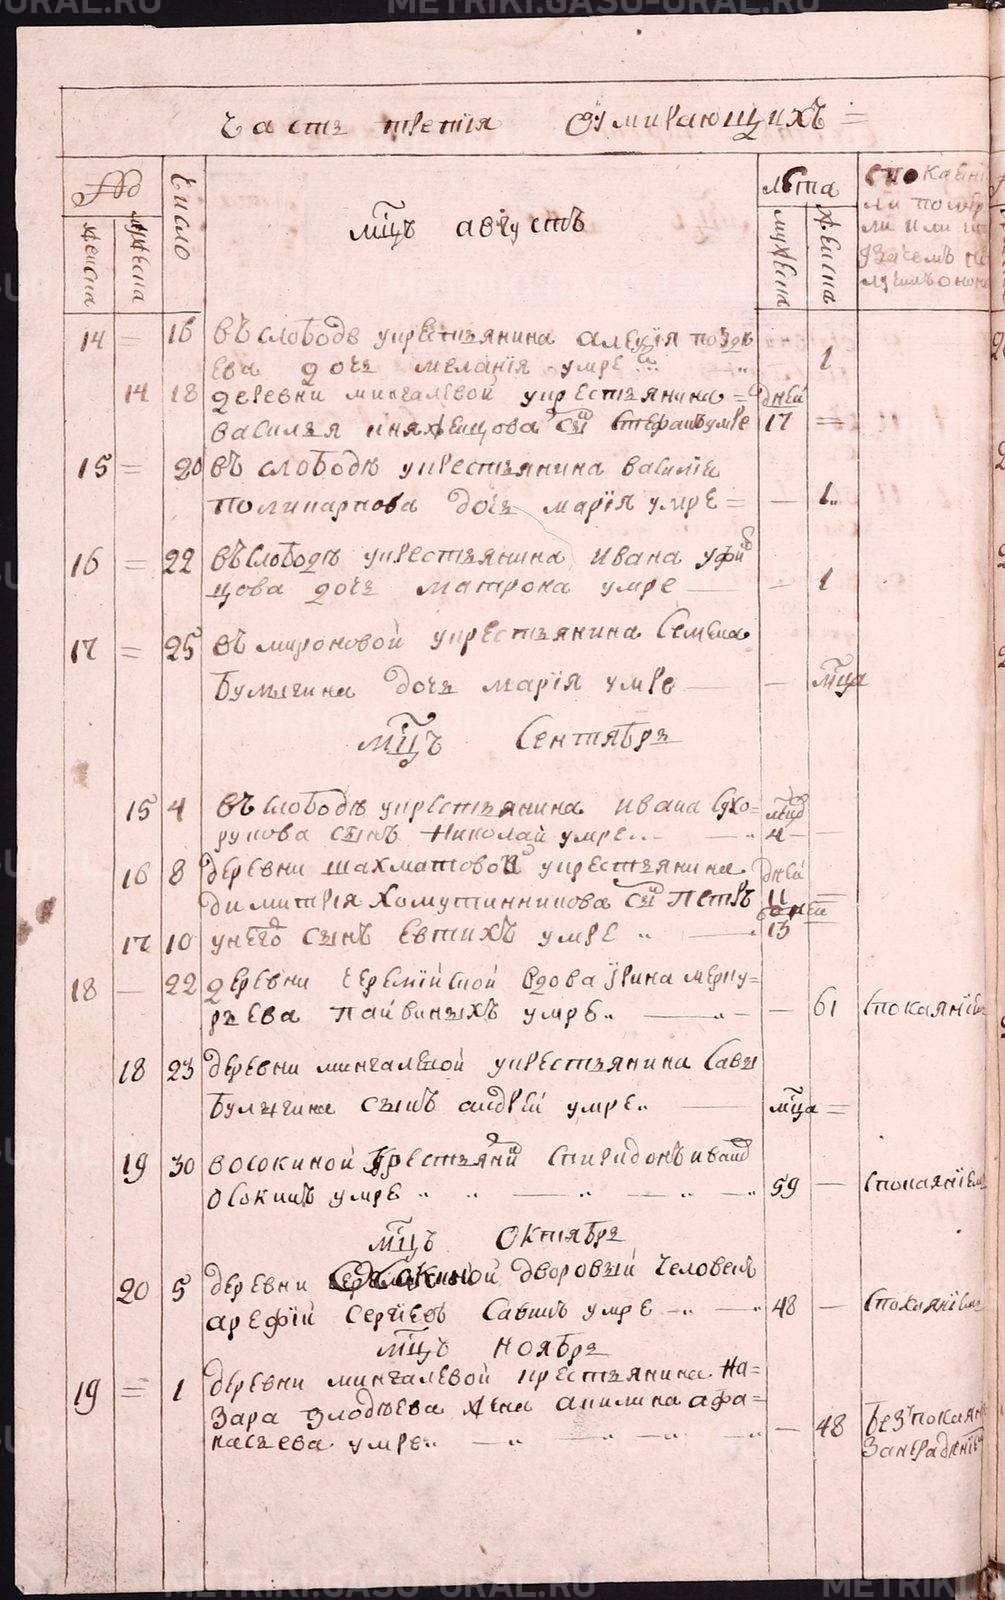 METRIKI.GASU-URAL.RU
часть третїя Ѹмирающихъ =
№
число
женска
мужеска
мц҃ъ августъ
лѣта
мужеска
женска
спокаені
ли помер
ли или
14 = 16 въ слободѣ укрестьянина алеѯїя поздѣ
ева дочь меланїя умре 1
14 18 деревни мингалевой укрестьянина = дней
василья княжещова сн҃ъ стефанъ умре 17 =
15 = 20 въ слободѣ укрестьянина василїе
поликарпова дочь марїя умре = — 1..
16 = 22 въ слободѣ укрестьянина ивана уфи
цова дочь матрона умре — - 1
17 = 25 въ мироновой укрестьянина семена
булыгина дочь марїя умре — - мц҃а
мц҃ъ Сентябрь
15 4 въ слободѣ укрестьянина ивана сухо=
рукова сынъ николай умре.. 4 —
16 8 деревни шахматовой укрестьянина дней
димитрїя хомутинникова сн҃ъ петръ 11 =
дней
17 10 унего сынъ евтихъ умре 13
18 — 22 деревни черемїйской вдова ирина мерку=
рьева пайвиныхъ умре.. — 61 спокаянїем
18 23 деревни мингалевой укрестьянина савы
булыгина сынъ андрей умре.. — мц҃а =
19 30 восокиной крестьянин спиридонъ иванов
осокинъ умре 59 — спокаянїемъ
мц҃ъ октябрь
20 5 деревни осокиной дворовый человекъ
арефїй сергїевъ савинъ умре 48 — спокаянїем
мц҃ъ ноябрь
19 = 1 деревни мингалевой крестьянина на=
зара злодѣева жена акилина афа=
насьева умре.. — 48 безъ покаян
METRIKI.GASU-URAL.RU